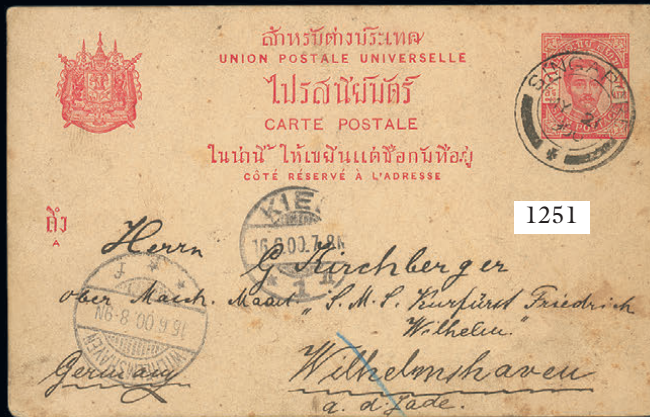 สำหรับต่างประเทศ
UNION POSTALE UNIVERSELLE
ไปรสนียบัตร์
CARTE POSTALE
ในน่านี้ ให้เขียนแต่ชื่อกับที่อยู่
CÔTÉ RÉSERVÉ À L'ADRESSE
SINGAPORE
1251
ถึง
A
KIEL
16.6.00.7-8N
1
Herrn G Kirchberger
ober Masch. Maat. "S.M.S. Kurfürst Friedrich
Wilhelm."
Germany
Wilhelmshaven
a. d Jade.
WILHELMSHAVEN
16.6.00.8-9N